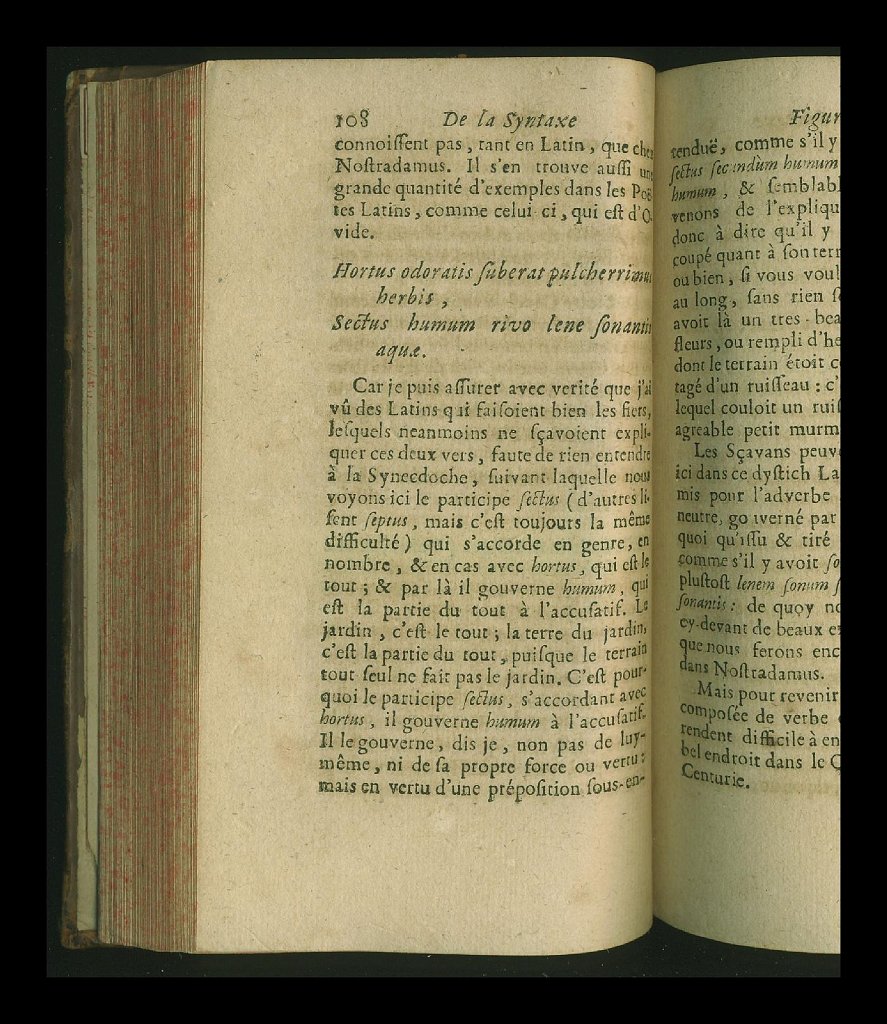 108 De la Syntaxe
connoiſſent pas, tant en Latin, que chez
Noſtradamus. Il s'en trouve auſſi une
grande quantité d'exemples dans les Poë-
tes Latins, comme celui-ci, qui eſt d'O-
vide.
Hortus odoratis ſuberat pulcherrimus
herbis,
Sectus humum rivo lene ſonantis
aquæ.
Car je puis aſſurer avec verité que j'ai
vû des Latins qui faiſoient bien les fiers,
leſquels neanmoins ne ſçavoient expli-
quer ces deux vers, faute de rien entendre
à la Synecdoche, ſuivant laquelle nous
voyons ici le participe ſectus (d'autres li-
ſent ſeptus, mais c'eſt toujours la même
difficulté) qui s'accorde en genre, en
nombre, & en cas avec hortus, qui eſt le
tout; & par là il gouverne humum, qui
eſt la partie du tout à l'accuſatif. Le
jardin, c'eſt le tout; la terre du jardin,
c'eſt la partie du tout, puiſque le terrain
tout ſeul ne fait pas le jardin. C'eſt pour-
quoi le participe ſectus, s'accordant avec
hortus, il gouverne humum à l'accuſatif.
Il le gouverne, dis je, non pas de luy-
même, ni de ſa propre force ou vertu:
mais en vertu d'une prépoſition ſous-en-
Figur
tenduë, comme s'il y
ſectus ſecundùm humum
humum, & ſemblabl
venons de l'expliqu
donc à dire qu'il y
coupé quant à ſon terr
ou bien, ſi vous voul
au long, ſans rien
avoit là un tres-bea
fleurs, ou rempli d'he
dont le terrain étoit c
tagé d'un ruiſſeau: c'
lequel couloit un ruiſ
agreable petit murm
Les Sçavans peuv
ici dans ce dyſtich La
mis pour l'adverbe
neutre, gouverné par
quoi qu'iſſu & tiré
comme s'il y avoit ſo
pluſtoſt lenem ſonum ſ
ſonantis: de quoy no
cy-devant de beaux e
que nous ferons enc
dans Noſtradamus.
Mais pour revenir
compoſée de verbe
rendent difficile à en
bel endroit dans le Q
Centurie.